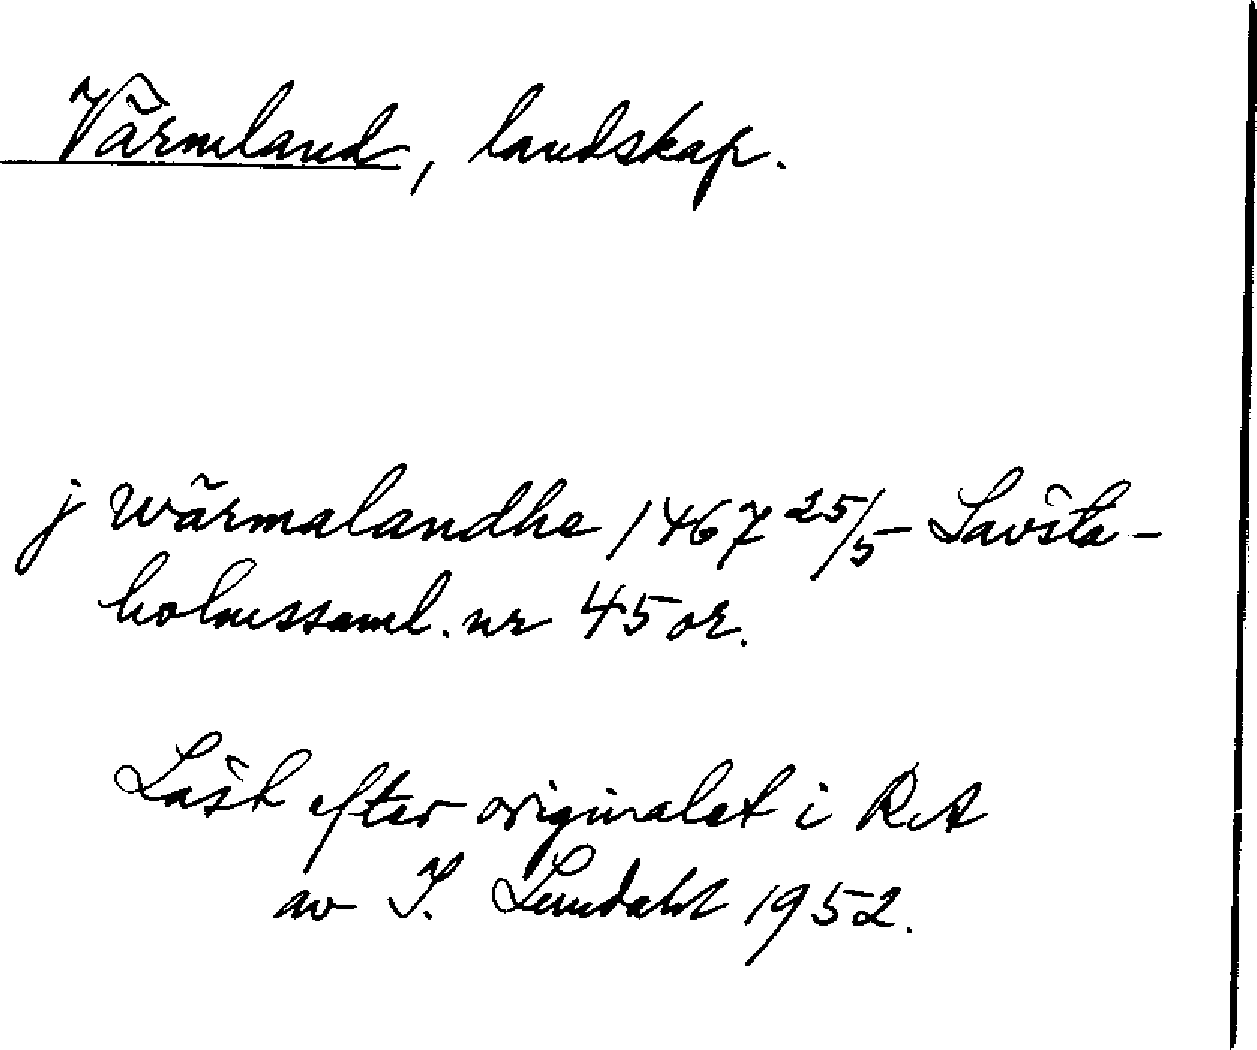 Värmland, landskap.
j wärmalandhe 1467 25/5 Sävsta-
holmssaml. nr 45 or.
Läst efter originalet i RA
av I. Lundahl 1952.